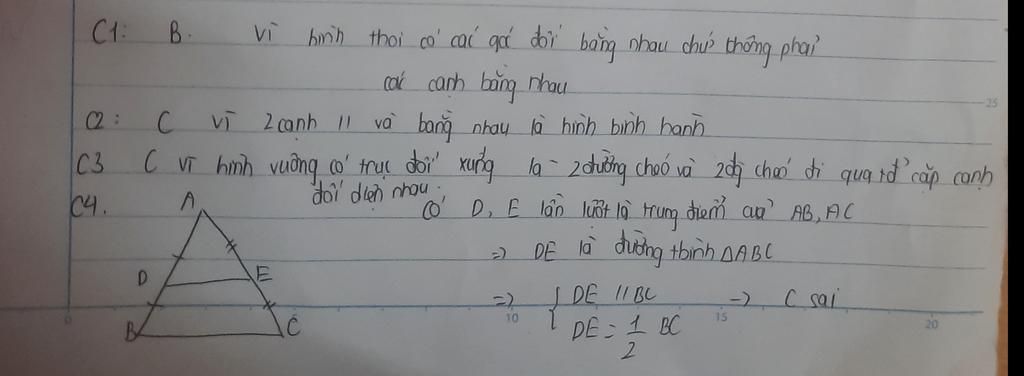 C1: B. Vì hình thoi có các góc đối bằng nhau chứ không phải
các cạnh bằng nhau
C2: C vì 2 cạnh // và bằng nhau là hình bình hành
C3 C vì hình vuông có trục đối xứng là 2 đường chéo và 2 đg chéo đi qua tđ cặp cạnh
đối diện nhau.
C4. A
Có D, E lần lượt là trung điểm của AB, AC
=> DE là đường tbình ΔABC
D E
=> { DE // BC -> C sai
DE = 1/2 BC
B C
25
0 10 15 20